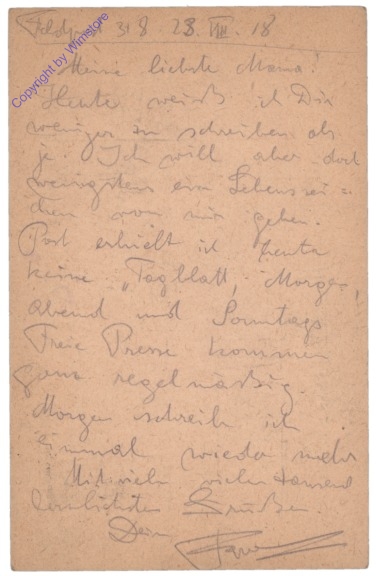 Feldp. 318 28. VIII. 18
Meine liebste Mama!
Heute weiß ich Dir
weniger zu schreiben als
je. Ich will aber doch
wenigstens ein Lebenszei=
chen von mir geben.
Post erhielt ich heute
keine, „Tagblatt", Morgen,
abend und Sonntags
Freie Presse kommen
ganz regelmäßig.
Morgen schreib ich
einmal wieder mehr
Mit viele vielen tausend
herzlichsten Grüßen
Dein
Copyright by Wimstore